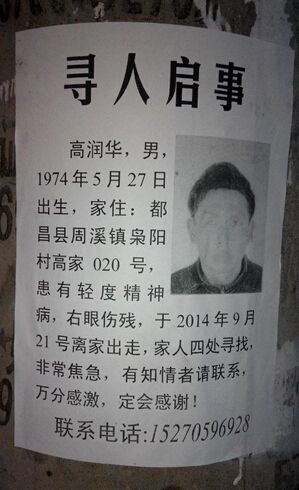 寻人启事
高润华，男，
1974年5月27日
出生，家住：都
昌县周溪镇枭阳
村高家 020 号，
患有轻度精神
病，右眼伤残，于 2014 年 9 月
21 号离家出走，家人四处寻找，
非常焦急，有知情者请联系，
万分感激，定会感谢！
联系电话:15270596928